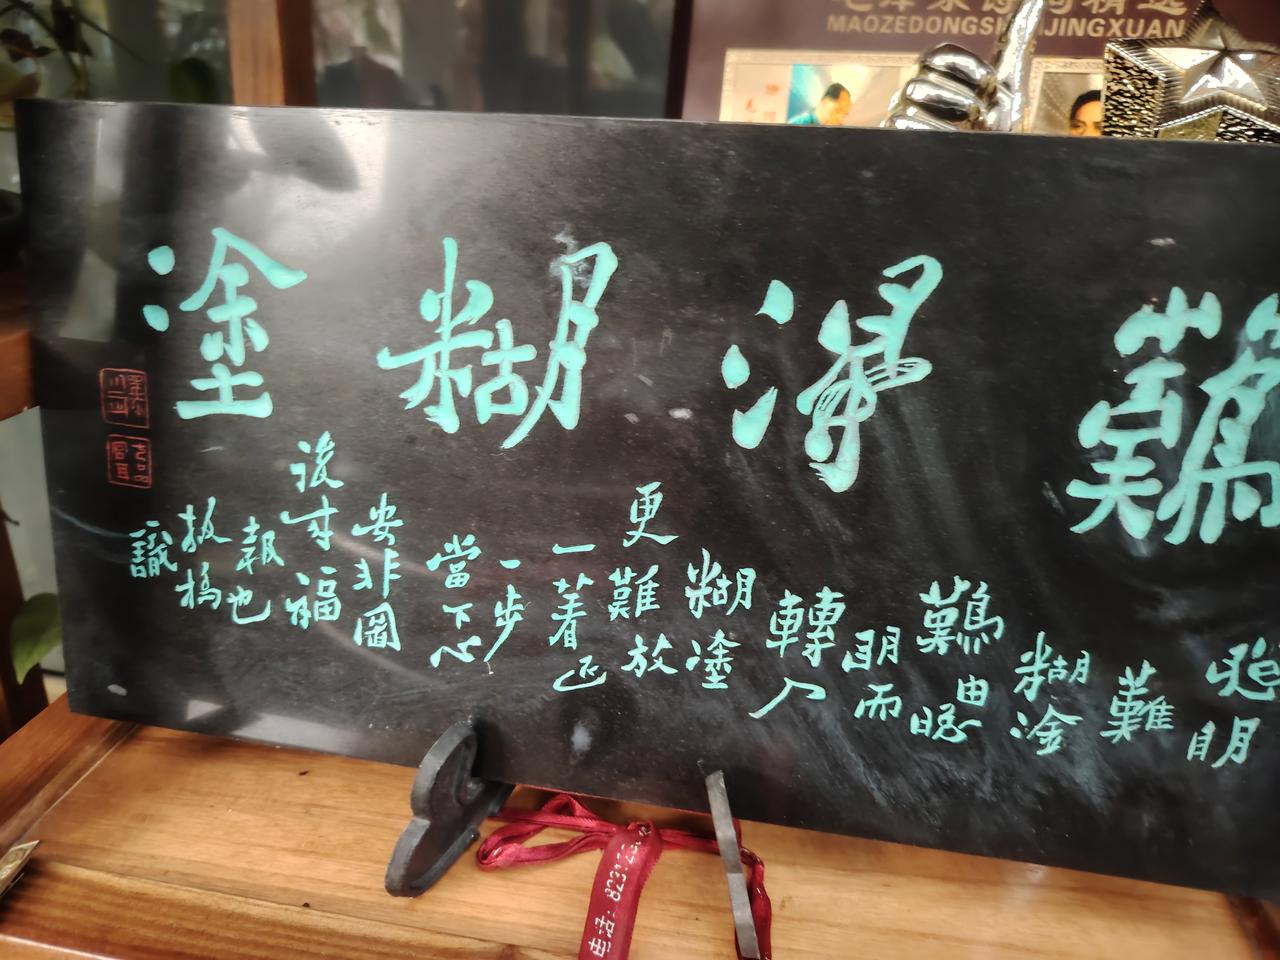 難得糊塗
聰明
難
糊塗
難由聰
明而
轉入
糊塗
更難放
一着退
一步
當下心
安非圖
後来福
報也
板橋
識
毛泽东诗词精选
电话: